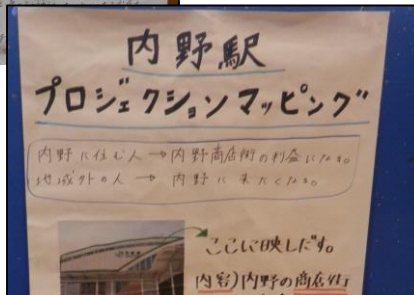 内野駅
プロジェクションマッピング
内野に住む人→内野商店街の利益になる。
地域外の人→内野に来たくなる。
ここに映しだす。
内容)内野の商店街